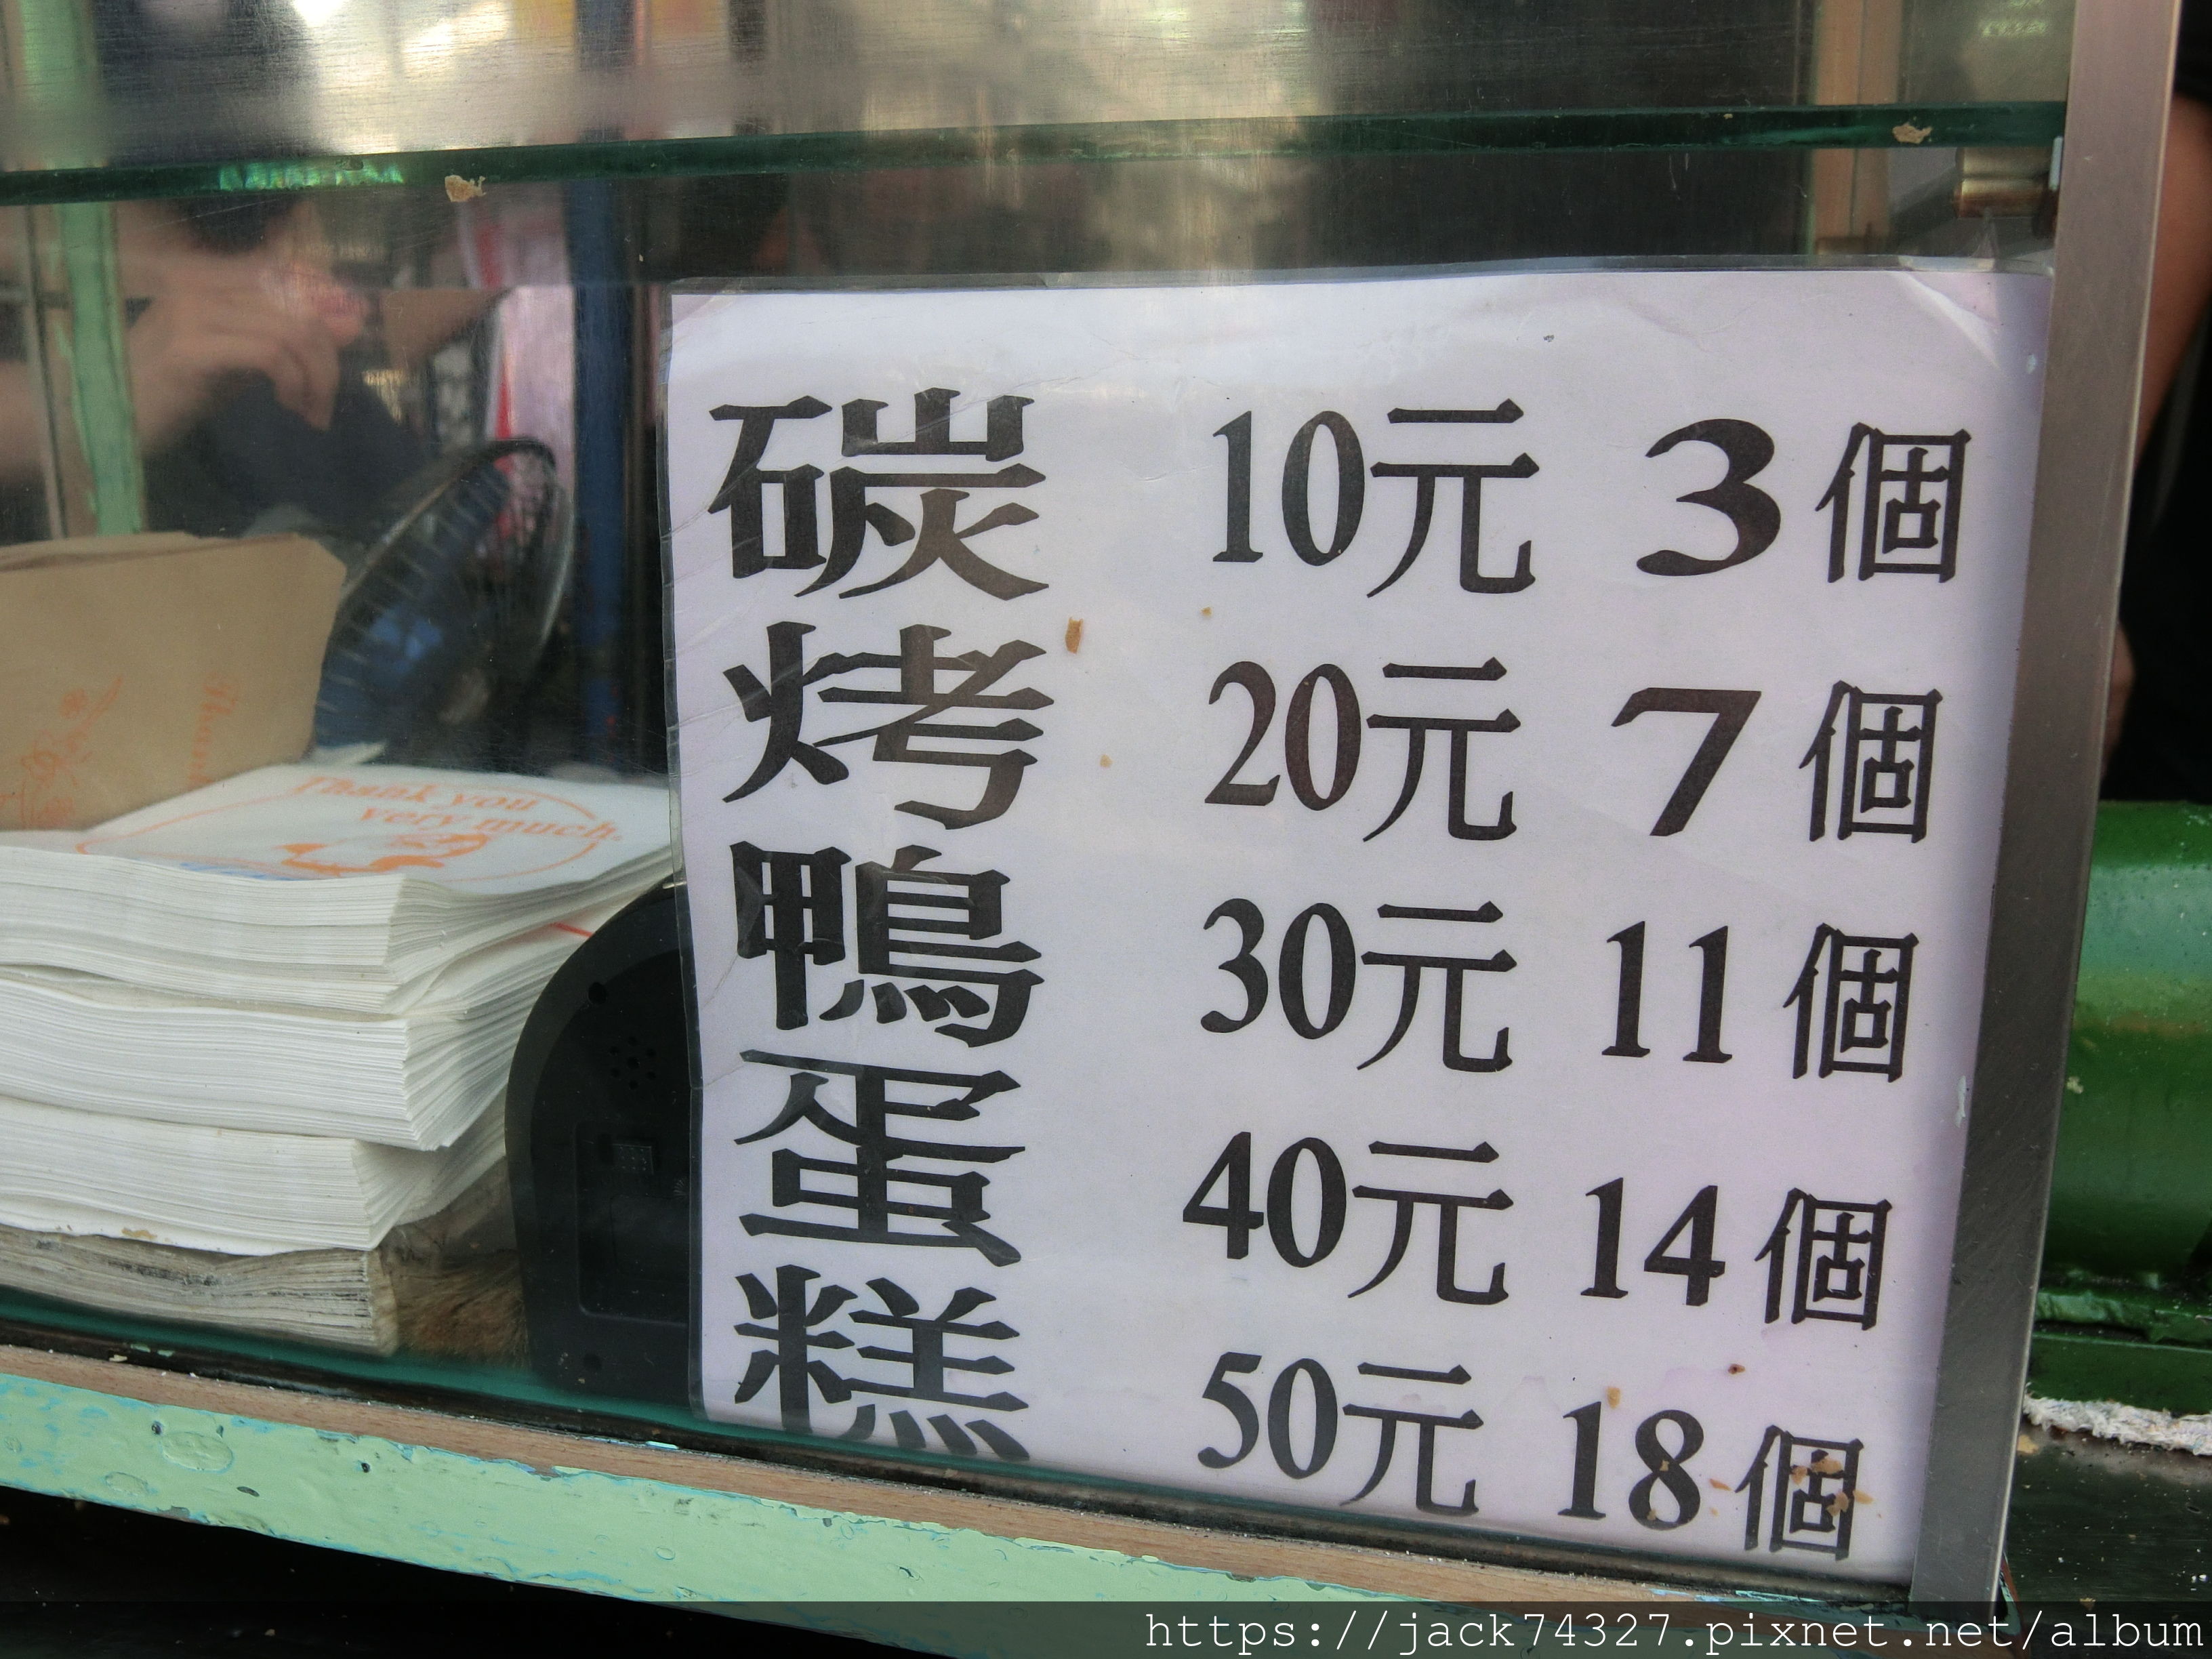 碳烤鴨蛋糕
10元 3個
20元 7個
30元 11個
40元 14個
50元 18個
Thank you
very much.
https://jack74327.pixnet.net/album